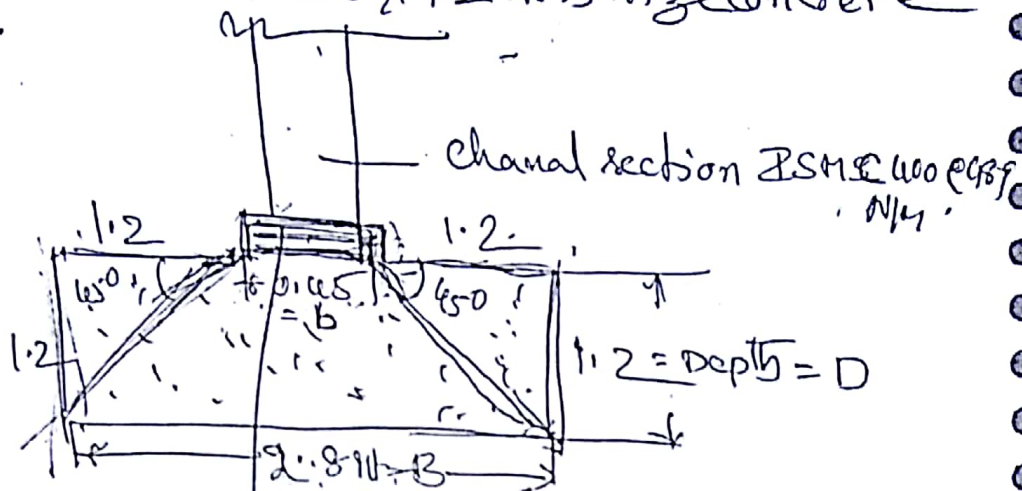 Chanal section ISMC 400 @ 489
N/M.
1.2
1.2
45°
0.45
= b
45°
1.2
1.2 = Depth = D